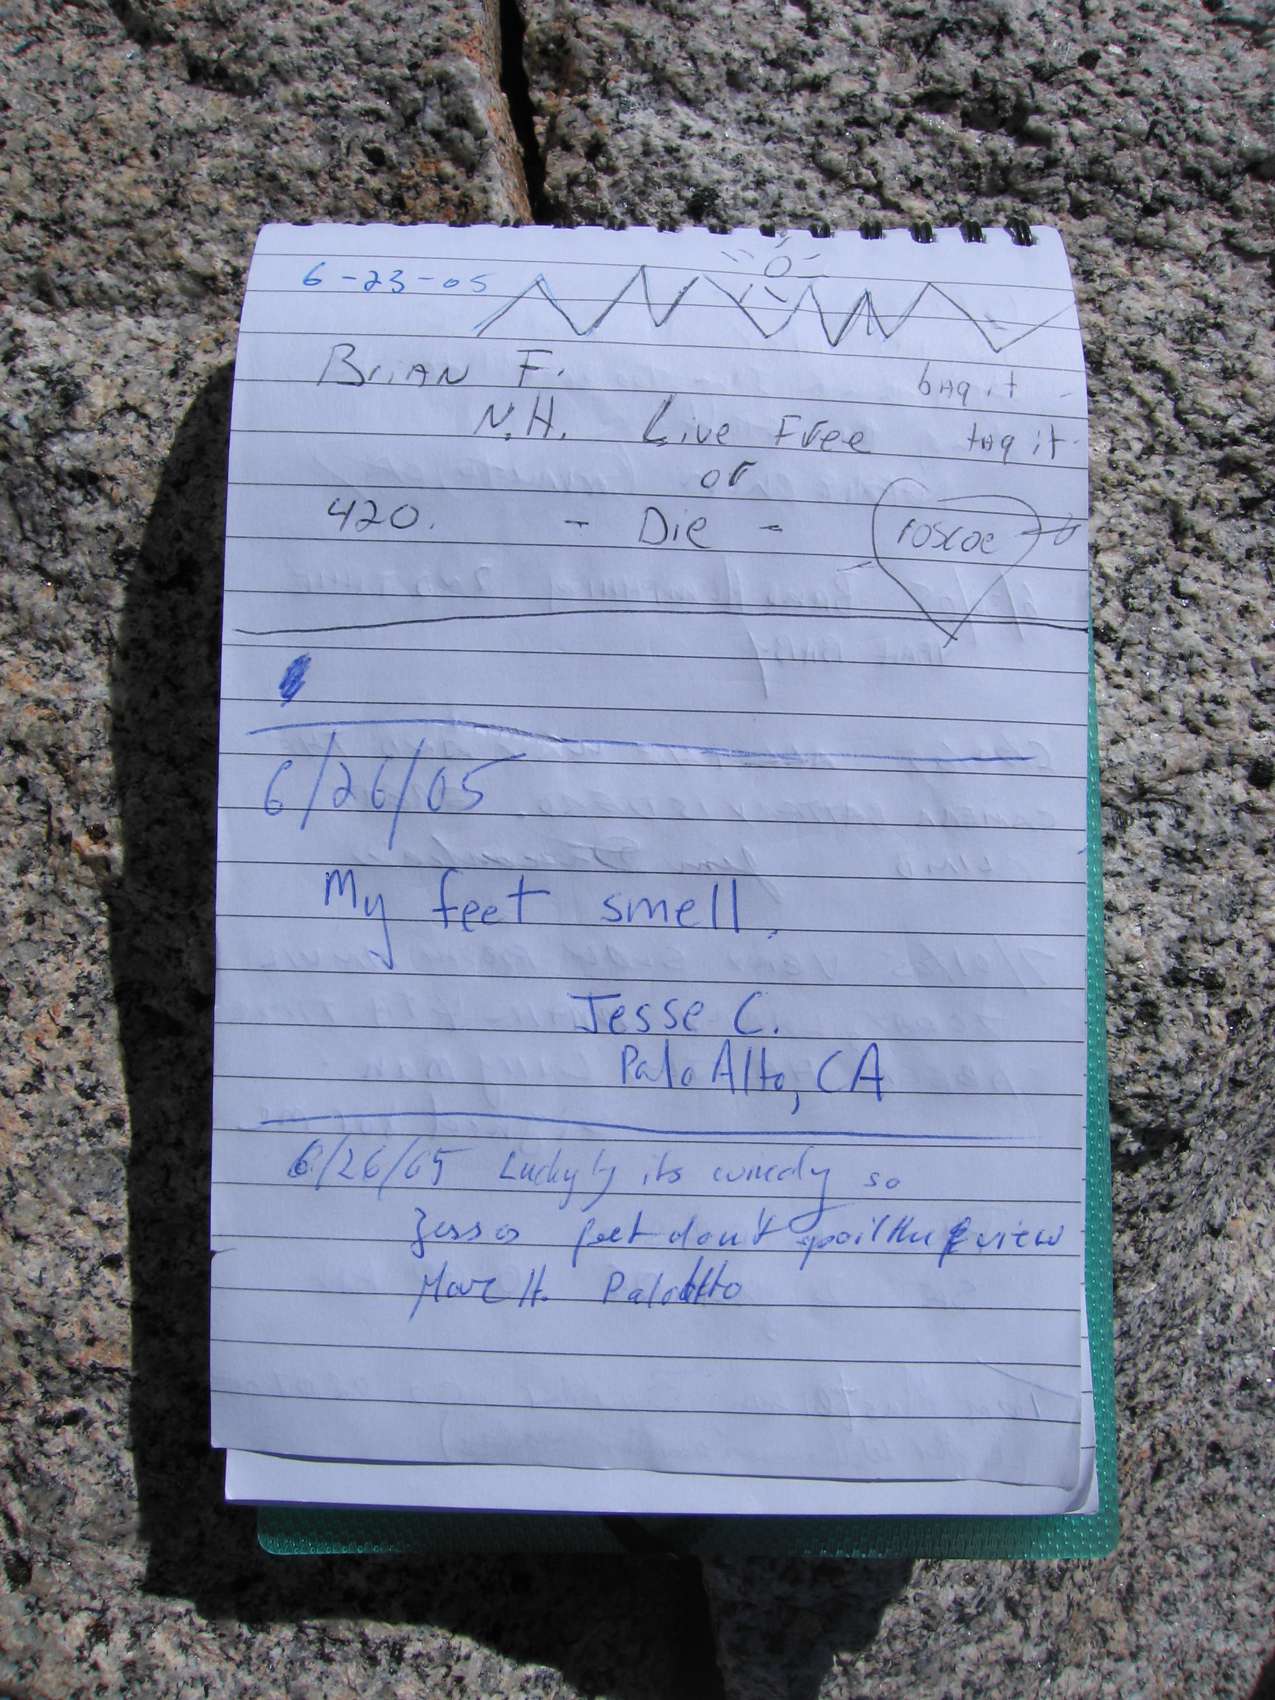 6-23-05
Brian F.
bag it
N.H. Live Free
tag it
or
420. - Die -
roscoe
6/26/05
My feet smell.
Jesse C.
Palo Alto, CA
6/26/05 Luckyly its windy so
feet don't spoil the view
Marc H. Palo Alto